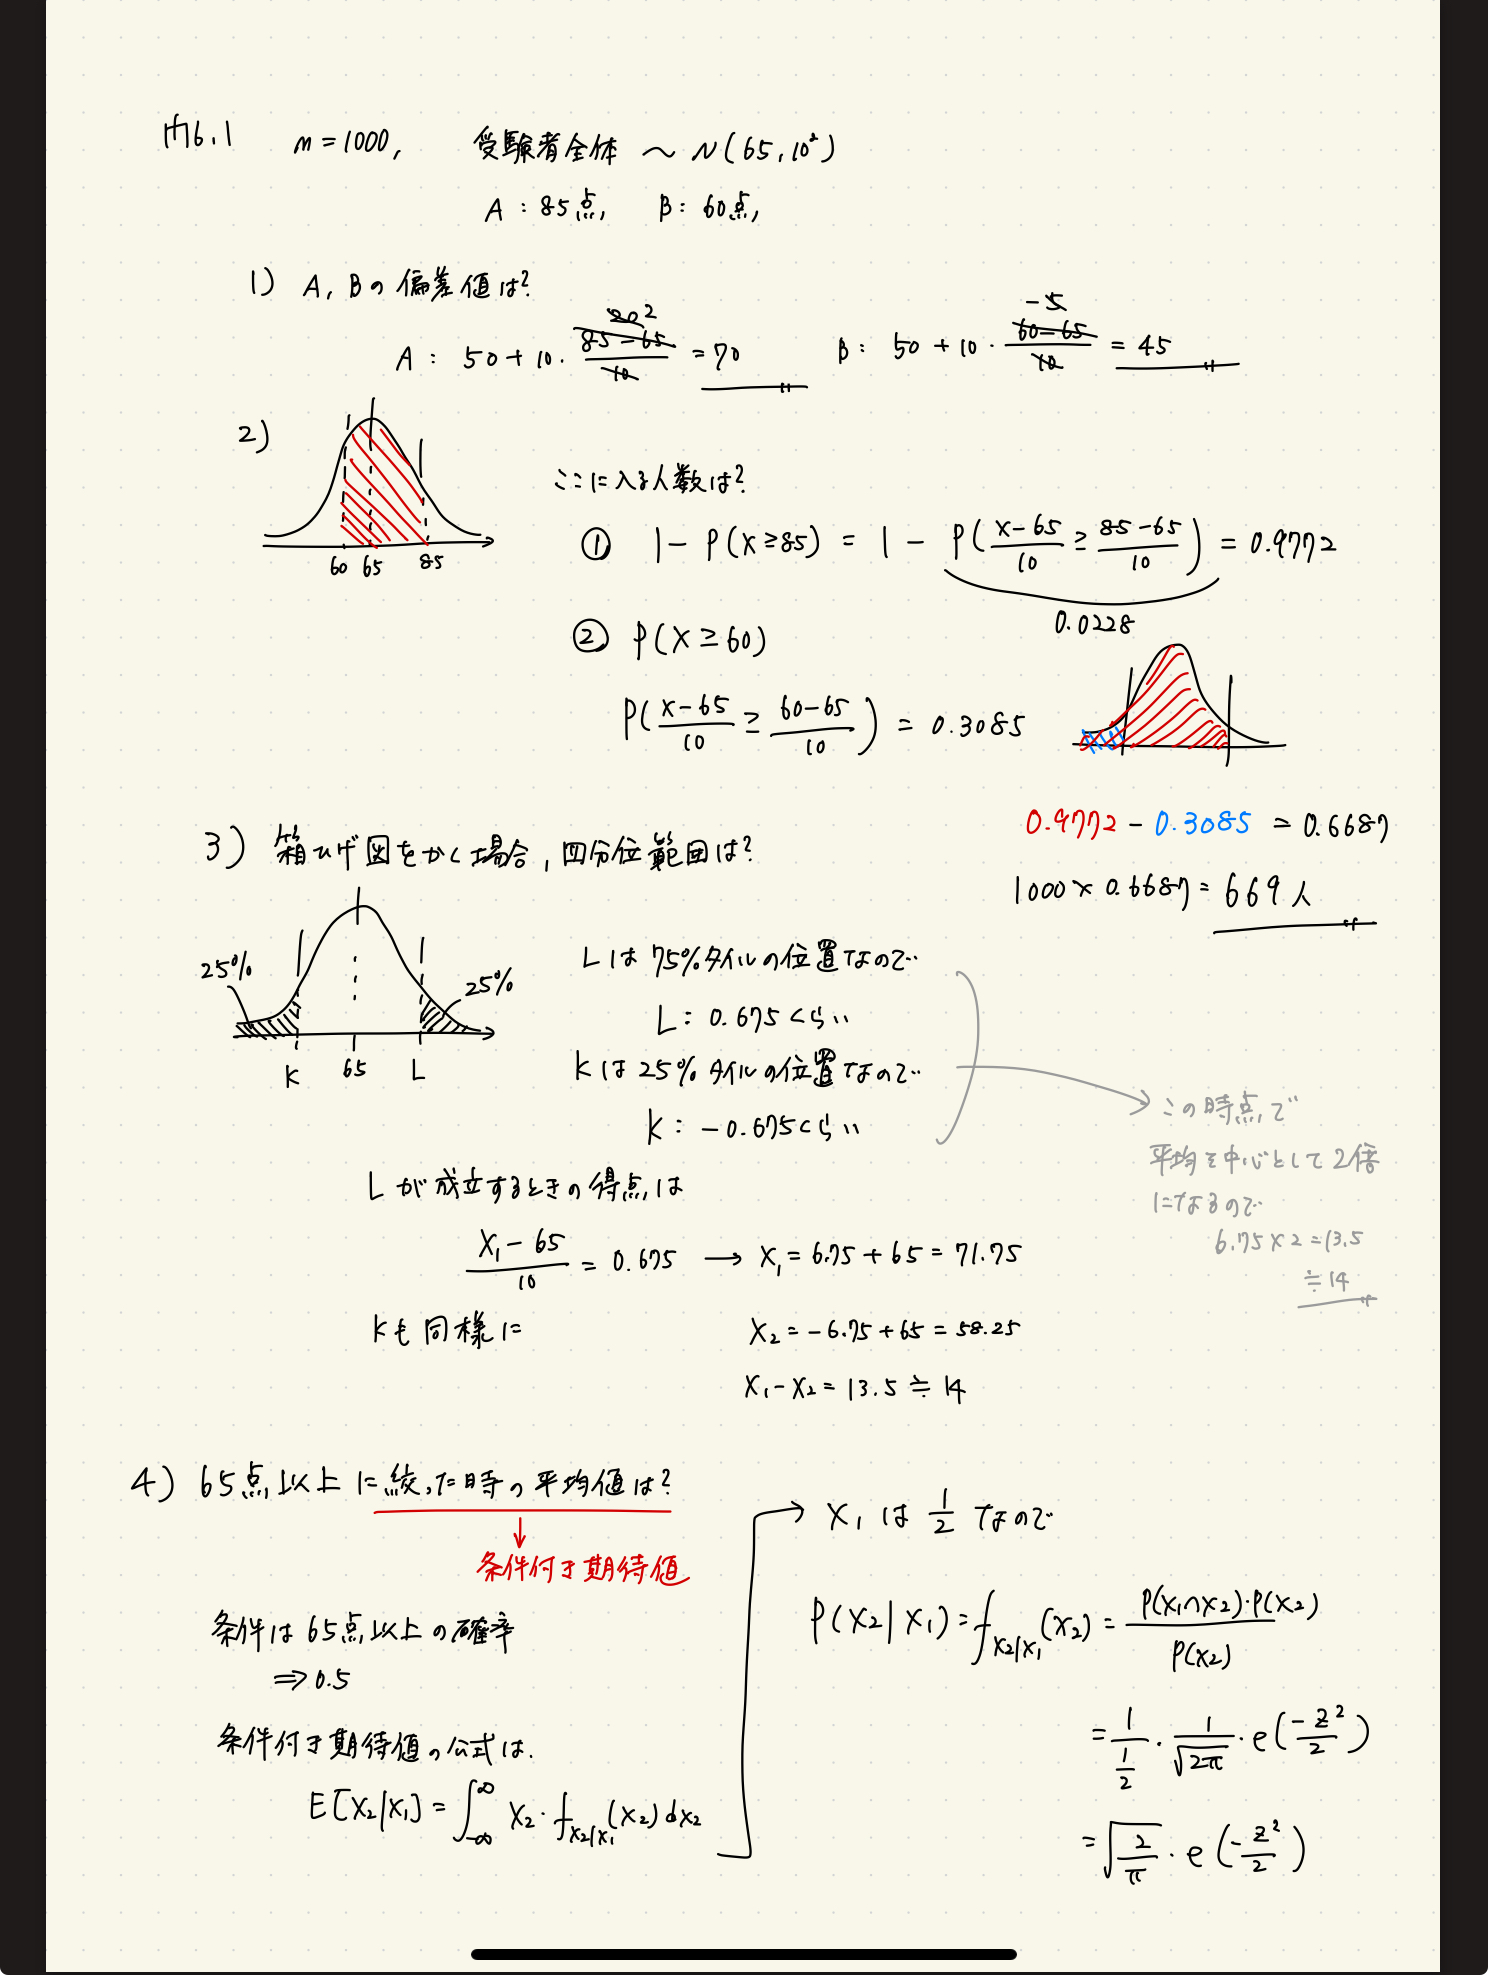 内6.1 n=1000, 受験者全体 ～ N(65, 10²)
A : 85点, B : 60点,
1) A, Bの偏差値は?
A : 50 + 10・(85-65)/10 = 70 20 2 B : 50 + 10・(60-65)/10 = 45 -5
2)
60 65 85
ここに入る人数は?
① 1 - P(X≧85) = 1 - P((X-65)/10 ≧ (85-65)/10) = 0.9772
0.0228
② P(X≧60)
P((X-65)/10 ≧ (60-65)/10) = 0.3085
0.9772 - 0.3085 = 0.6687
1000 × 0.6687 = 669人
3) 箱ひげ図をかく場合, 四分位範囲は?
25% 25%
K 65 L
Lは75%タイルの位置なので
L : 0.675くらい
Kは25%タイルの位置なので
K : -0.675くらい
この時点で
平均を中心として2倍
になるので
6.75×2=13.5
≒14
Lが成立するときの得点は
(X₁-65)/10 = 0.675 → X₁ = 6.75 + 65 = 71.75
Kも同様に X₂ = -6.75 + 65 = 58.25
X₁-X₂ = 13.5 ≒ 14
4) 65点以上に絞った時の平均値は?
↓
条件付き期待値
条件は65点以上の確率
⇒ 0.5
条件付き期待値の公式は.
E[X₂|X₁] = ∫_{-∞}^{∞} X₂・f_{X₂|X₁}(X₂)dx₂
→ X₁は 1/2 なので
P(X₂|X₁) = f_{X₂|X₁}(X₂) = P(X₁∩X₂)・P(X₂)/P(X₂)
= 1/(1/2)・1/√2π・e(-z²/2)
= √(2/π)・e(-z²/2)